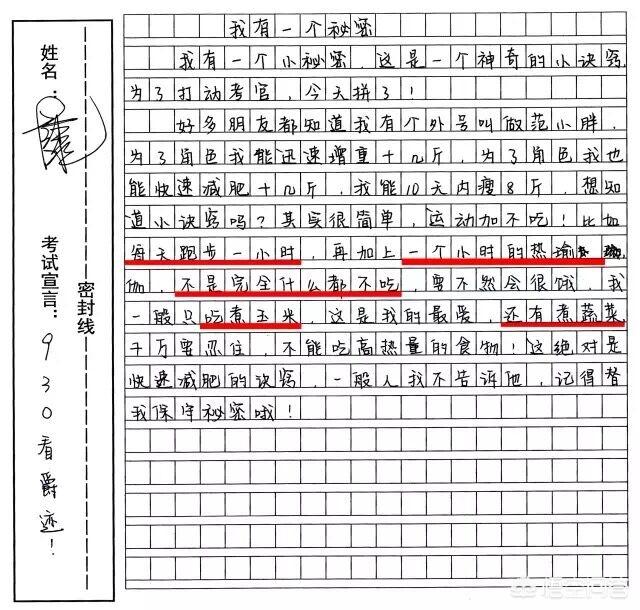 姓名：
考试宣言：930看爵迹！
密封线
我有一个秘密
我有一个小秘密，这是一个神奇的小诀窍，
为了打动考官，今天拼了！
好多朋友都知道我有个外号叫做范小胖，
为了角色我能迅速增重十几斤，为了角色我也
能快速减肥十几斤，我能10天内瘦8斤，想知
道小诀窍吗？其实很简单，运动加不吃！比如
每天跑步一小时，再加上一个小时的热瑜
伽，不是完全什么都不吃，要不然会很饿，我
一般只吃煮玉米，这是我的最爱，还有煮蔬菜，
千万要忍住，不能吃高热量的食物！这绝对是
快速减肥的诀窍，一般人我不告诉他，记得替
我保守秘密哦！
悟空问答